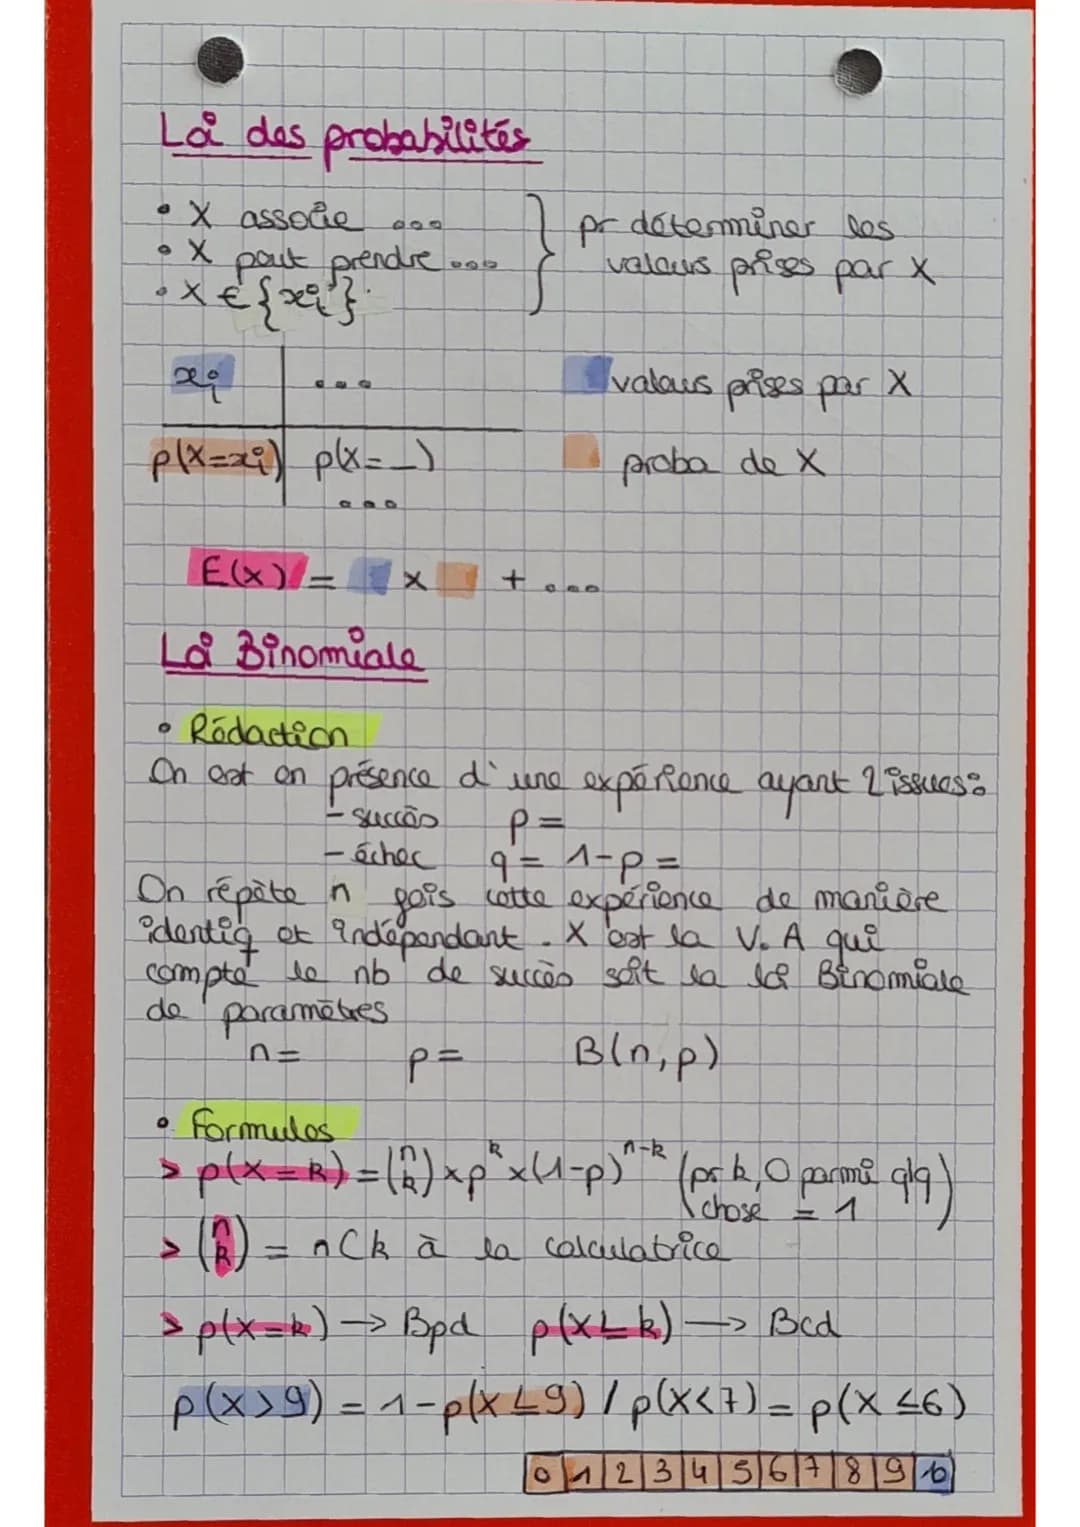 Loi des probabilités
• X associe ...
• X peut prendre ...
• X ∈ {xi}.
} pr déterminer les valeurs prises par X
xi | ...
valeurs prises par X
p(X=xi) | p(X=_)
...
proba de X
E(x) = × + ...
Loi Binomiale
• Rédaction
On est en présence d'une expérience ayant 2 issues:
- succès p =
- échec q = 1-p =
On répète n fois cette expérience de manière
identiq et indépendant. X est la V.A qui
compte le nb de succès soit la loi Binomiale
de paramètres
n= p= B(n,p)
• Formules
> p(X=k) = (n k) × p^k × (1-p)^n-k (pr k, 0 parmi qlq chose = 1)
> (n k) = nCk à la calculatrice
> p(X=k) → Bpd p(X≤k) → Bcd
p(X>9) = 1-p(X≤9) / p(X<7) = p(X≤6)
0 1 2 3 4 5 6 7 8 9 10